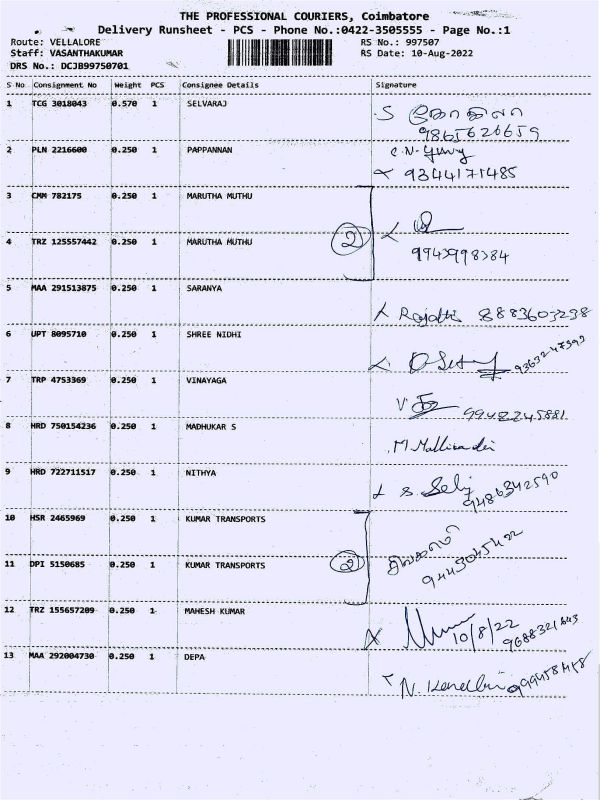 THE PROFESSIONAL COURIERS, Coimbatore
Delivery Runsheet - PCS - Phone No.:0422-3505555 - Page No.:1
Route: VELLALORE RS No.: 997507
Staff: VASANTHAKUMAR RS Date: 10-Aug-2022
DRS No.: DCJB99750701
S No Consignment No Weight PCS Consignee Details Signature
1 TCG 3018043 0.570 1 SELVARAJ S
9865626659
2 PLN 2216600 0.250 1 PAPPANNAN C.N.
9344171485
3 CMM 782175 0.250 1 MARUTHA MUTHU
4 TRZ 125557442 0.250 1 MARUTHA MUTHU 2
5 MAA 291513875 0.250 1 SARANYA 8883603238
6 UPT 8095710 0.250 1 SHREE NIDHI
7 TRP 4753369 0.250 1 VINAYAGA V
8 HRD 750154236 0.250 1 MADHUKAR S M.
9 HRD 722711517 0.250 1 NITHYA S.
9486342590
10 HSR 2465969 0.250 1 KUMAR TRANSPORTS
11 DPI 5150685 0.250 1 KUMAR TRANSPORTS 2
12 TRZ 155657209 0.250 1 MAHESH KUMAR
10/8/22
13 MAA 292004730 0.250 1 DEPA N.